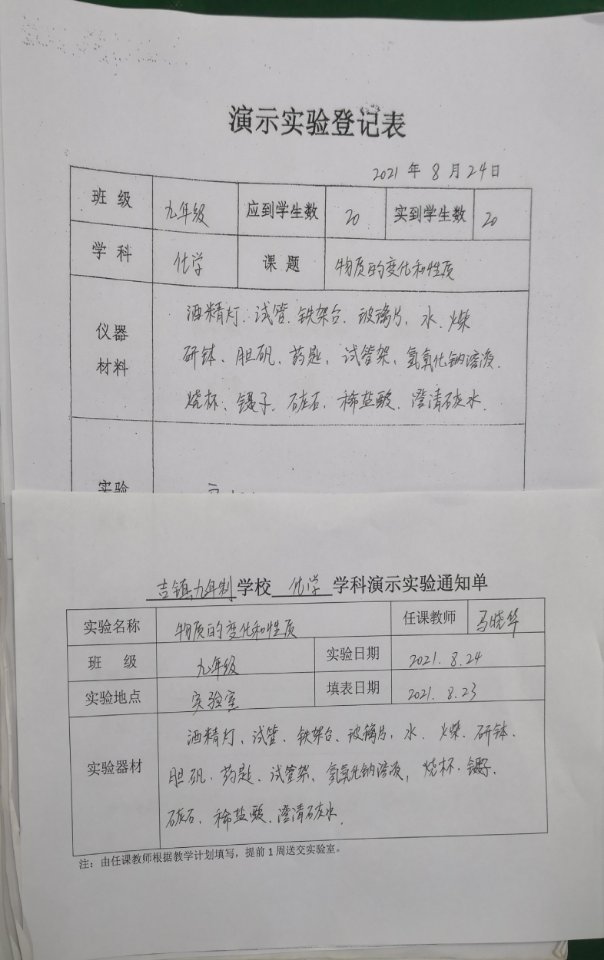 演示实验登记表
2021 年 8 月 24日
班 级 九年级 应到学生数 20 实到学生数 20
学 科 化学 课 题 物质的变化和性质
仪器材料
酒精灯、试管、铁架台、玻璃片、水、火柴
研钵、胆矾、药匙、试管架、氢氧化钠溶液、
烧杯、镊子、石灰石、稀盐酸、澄清石灰水、
实验
吉镇九年制 学校 化学 学科演示实验通知单
实验名称 物质的变化和性质 任课教师 马晓华
班 级 九年级 实验日期 2021.8.24
实验地点 实验室 填表日期 2021.8.23
实验器材
酒精灯、试管、铁架台、玻璃片、水、火柴、研钵、
胆矾、药匙、试管架、氢氧化钠溶液，烧杯、镊子、
石灰石、稀盐酸、澄清石灰水、
注：由任课教师根据教学计划填写，提前1周送交实验室。